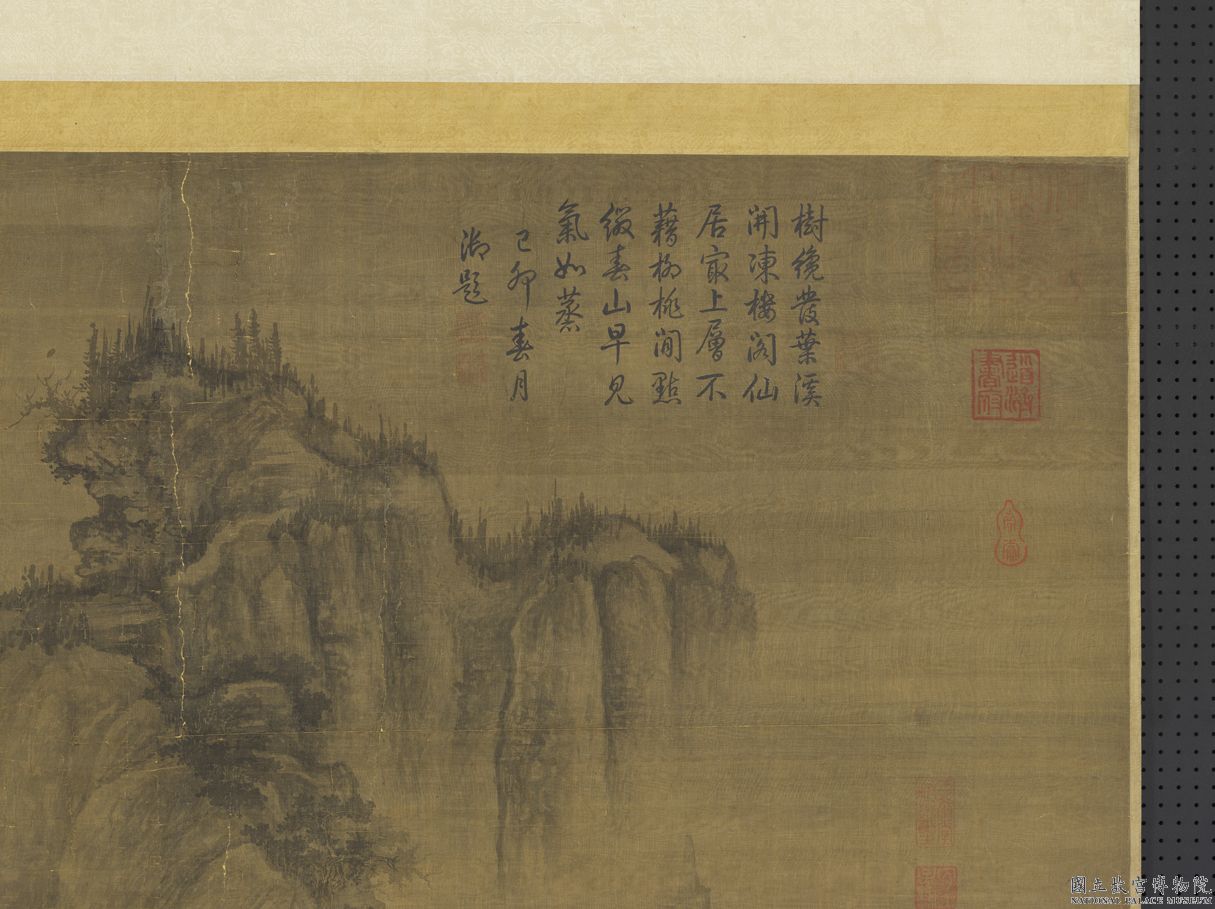 樹纔發葉溪
開凍樓閣仙
居最上層不
藉柳桃閒點
綴春山早見
氣如蒸
己卯春月
御題
國立故宮博物院
NATIONAL PALACE MUSEUM